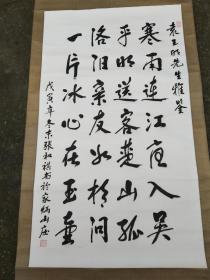 袁玉明先生雅鉴
寒雨連江夜入吴
平明送客楚山孤
洛阳亲友如相问
一片冰心在玉壶
戊寅年冬末張和祺书於家山庄